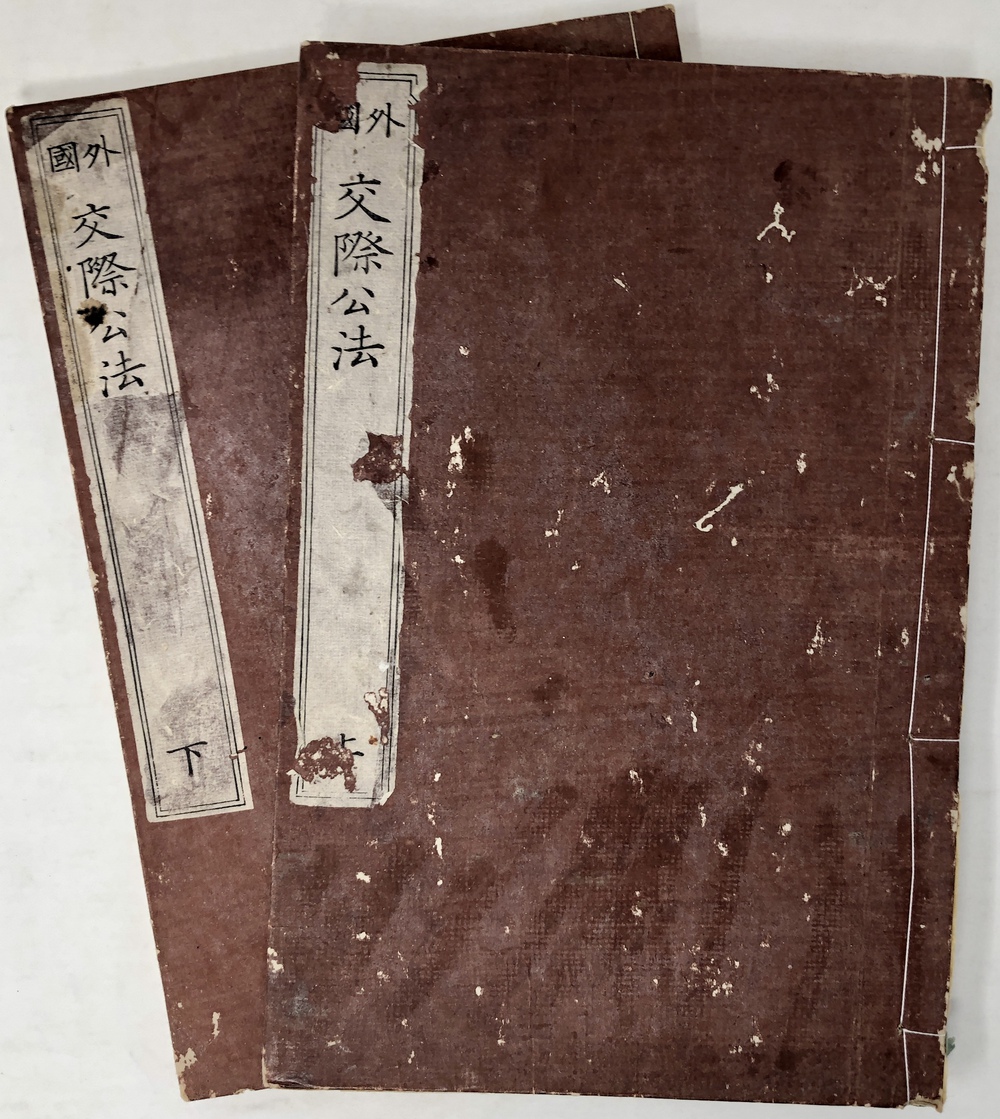 外國
交際公法
上
外國
交際公法
下